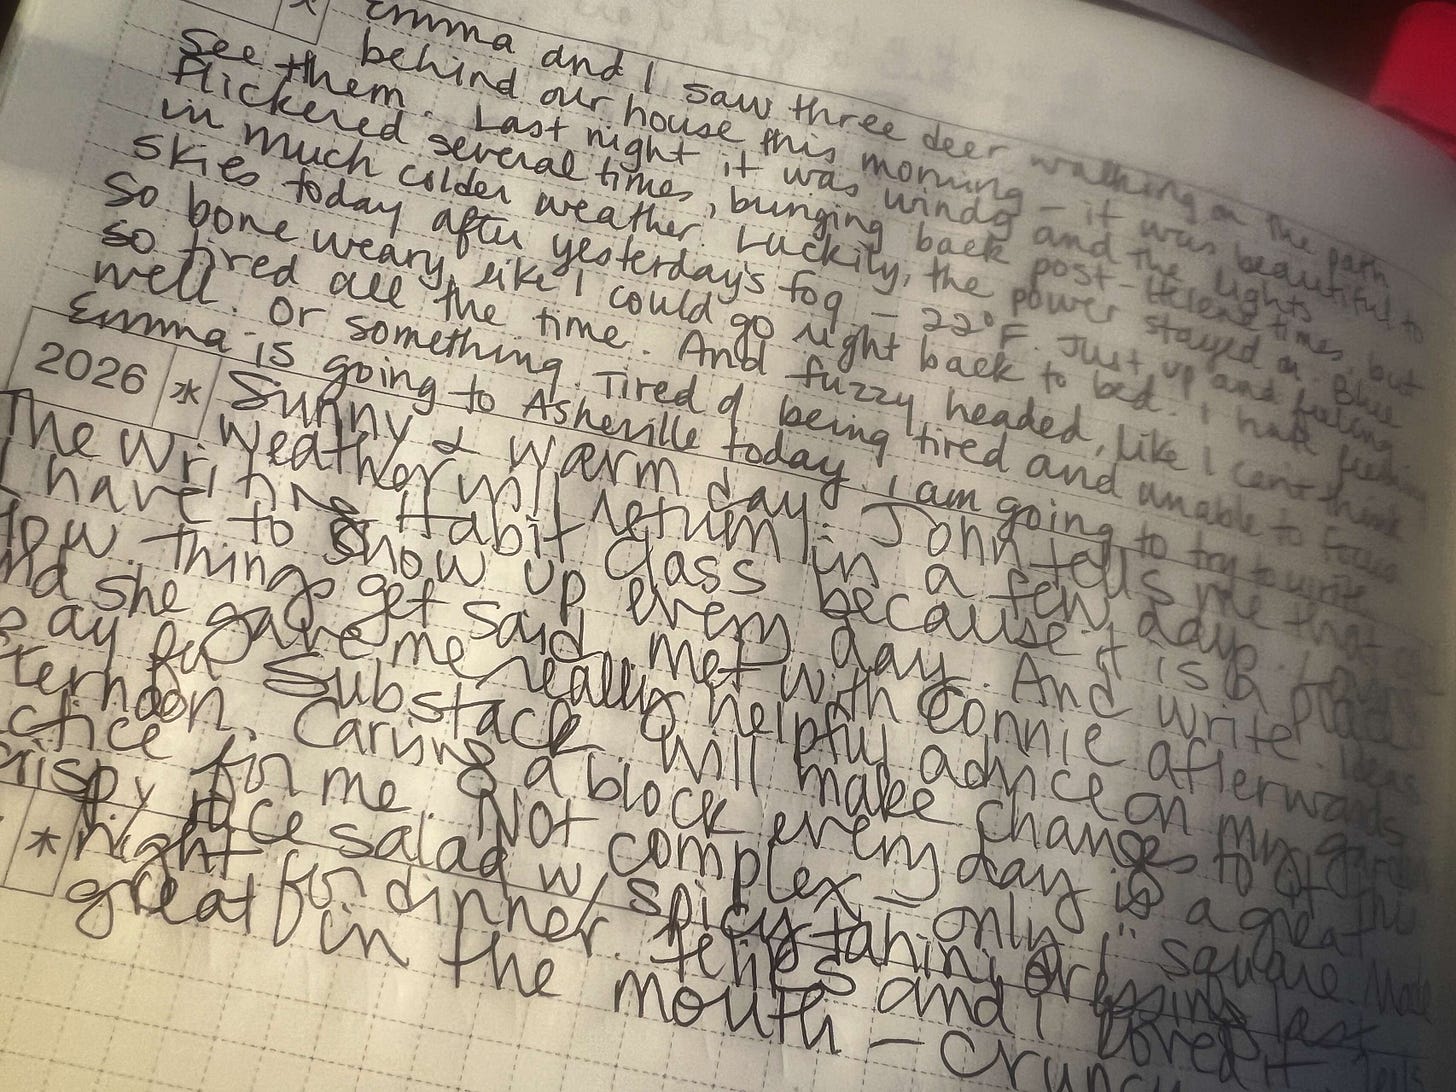 * Emma and I saw three deer walking on the path
behind our house this morning – it was beautiful to
see them. Last night it was windy and the lights
flickered several times, bunging back post-Helene times, but
in much colder weather. Luckily, the power stayed on. Blue
skies today after yesterday's fog – 22°F. Just up and feeling
so bone weary, like I could go right back to bed. I hate feeling
so tired all the time. And fuzzy headed, like I can't think
well. Or something. Tired of being tired and unable to focus
Emma is going to Asheville today. I am going to try to write
2026 * Sunny & warm day. John tells me that
weather will return in a few days.
The Writing Habit class because it is a
I have to show up every day. And write. Ideas
How things get said. Met with Connie afterwards
and she gave me really helpful advice on my garden
essay for Substack. Will make changes to it this
afternoon. Carving a block every day is a great
practice for me. Not complex – only 1" square. Made
crispy rice salad w/ spicy tahini dressing last
* night for dinner. Felipes and I loved it
great in the mouth –